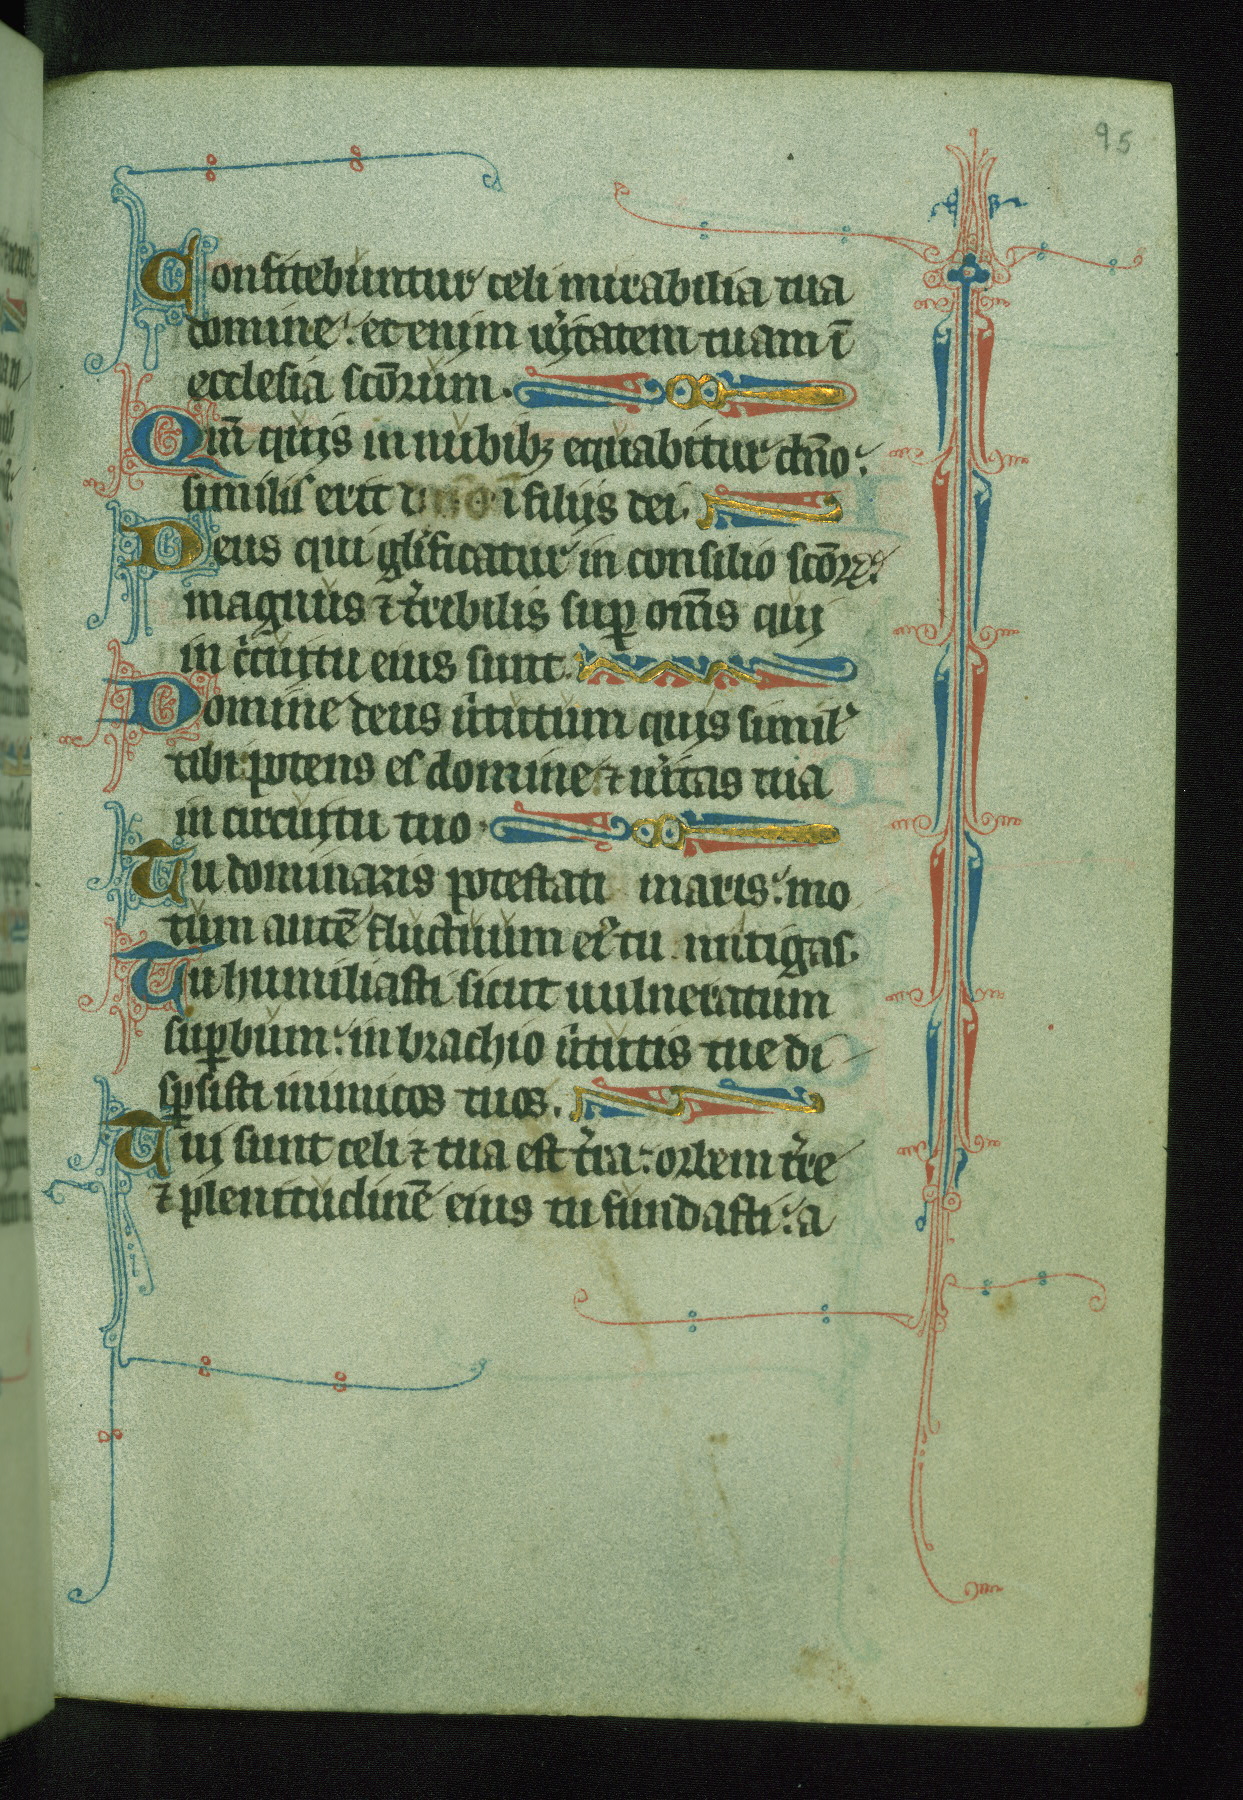 95
Confitebuntur celi mirabilia tua
domine: et enim ũitatem tuam ĩ
ecclesia scõrum.
Qm̃ quis in nubibꝫ equabitur dño:
similis erit ĩ filijs dei.
Deus qui gl̃ificatur in consilio scõrꝝ:
magnus ⁊ t̃ribilis suꝑ om̃s qui
in c̃cuitu eius sunt.
Domine deus ũtutum quis simil̃
tibi potens es domine ⁊ ũitas tua
in circuitu tuo.
Tu dominaris potestati maris: mo
tum autẽ fluctuum ei᷒ tu mitigas.
Tu humiliasti sicut uulneratum
suꝑbum: in brachio ũtutis tue di
sꝑsisti inimicos tuos.
Tui sunt celi ⁊ tua est t̃ra: orbem t̃re
⁊ plenitudinẽ eius tu fundasti: a